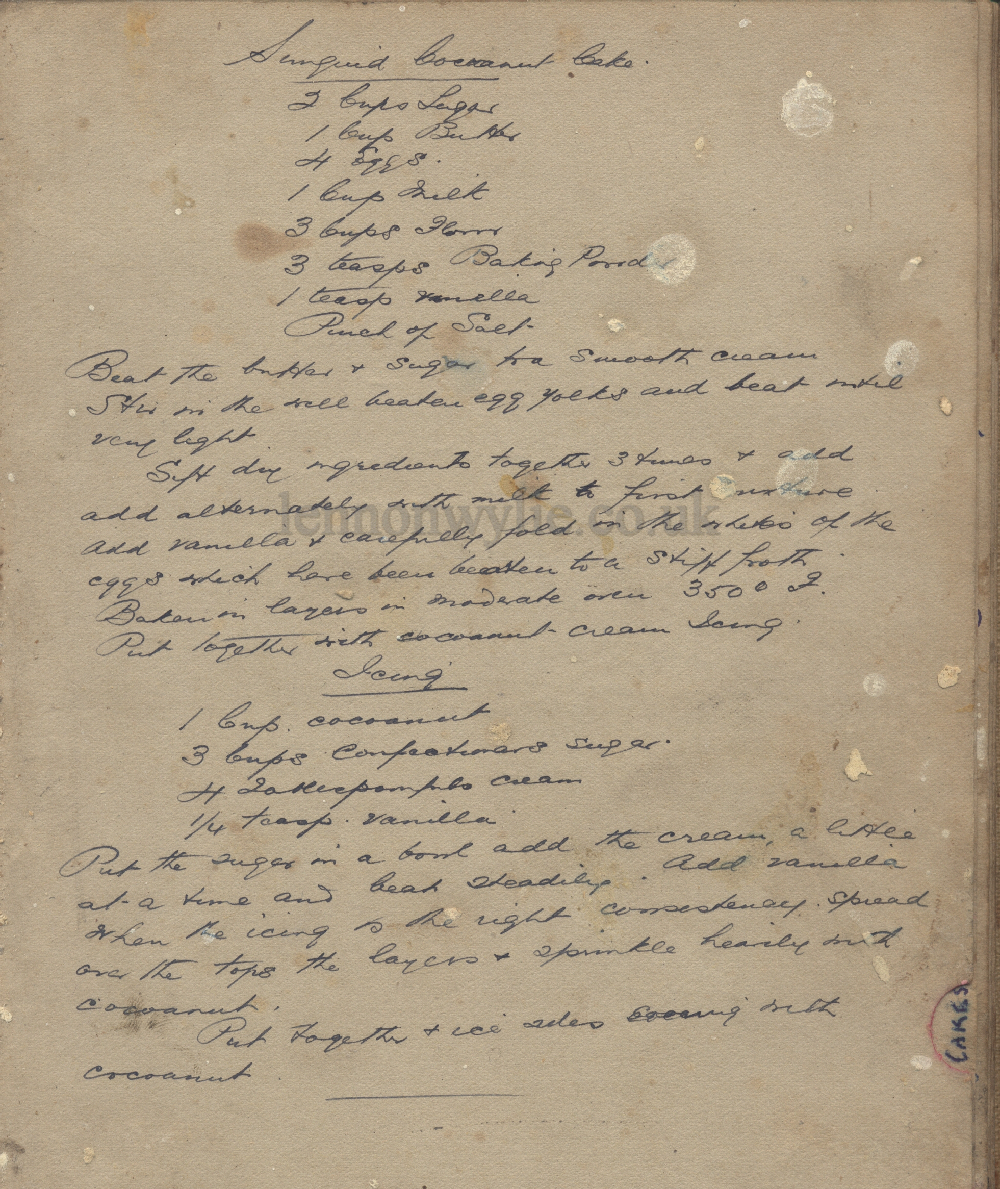 Cocoanut Cake.
2 Cups Sugar
1 Cup Butter
4 Eggs.
1 Cup Milk
3 Cups Flour
3 teasps Baking Powder
1 teasp vanilla
Pinch of Salt
Beat the butter + sugar to a smooth cream
Stir in the well beaten egg yolks and beat until
very light
Sift dry ingredients together 3 times + add
add alternately with milk to first mixture
lemonwylie.co.uk
Add vanilla + carefully fold in the whites of the
eggs which have been beaten to a stiff froth.
Bake in layers in moderate oven 350° F.
Put together with cocoanut cream Icing.
Icing
1 Cup. cocoanut
3 Cups Confectioners sugar.
4 cream
1/4 teasp. vanilla
Put the sugar in a bowl add the cream, a little
at a time and beat steadily. Add vanilla
When the icing is the right consistency. spread
over the tops the layers + sprinkle heavily with
cocoanut.
Put together + ice sides with
cocoanut
CAKES